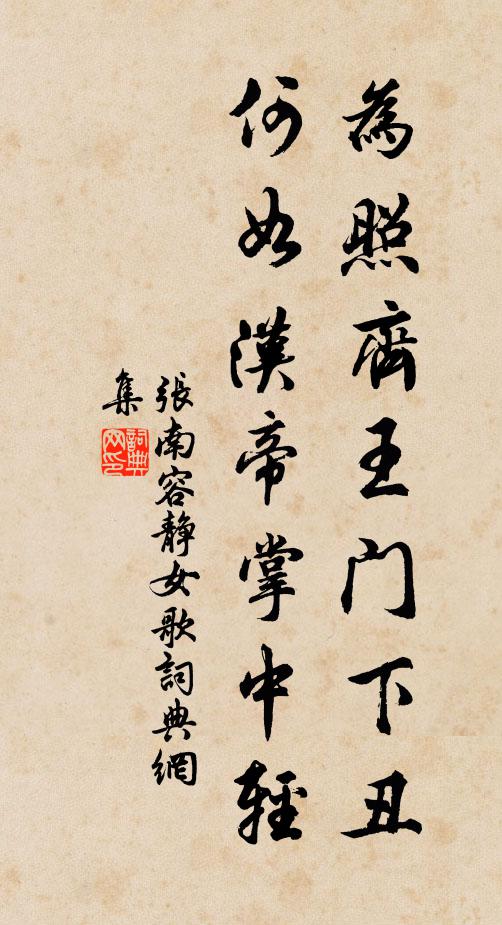 為照齊王門下丑
何如漢帝掌中輕
張南容靜女歌詞典網
集
詞典
网印